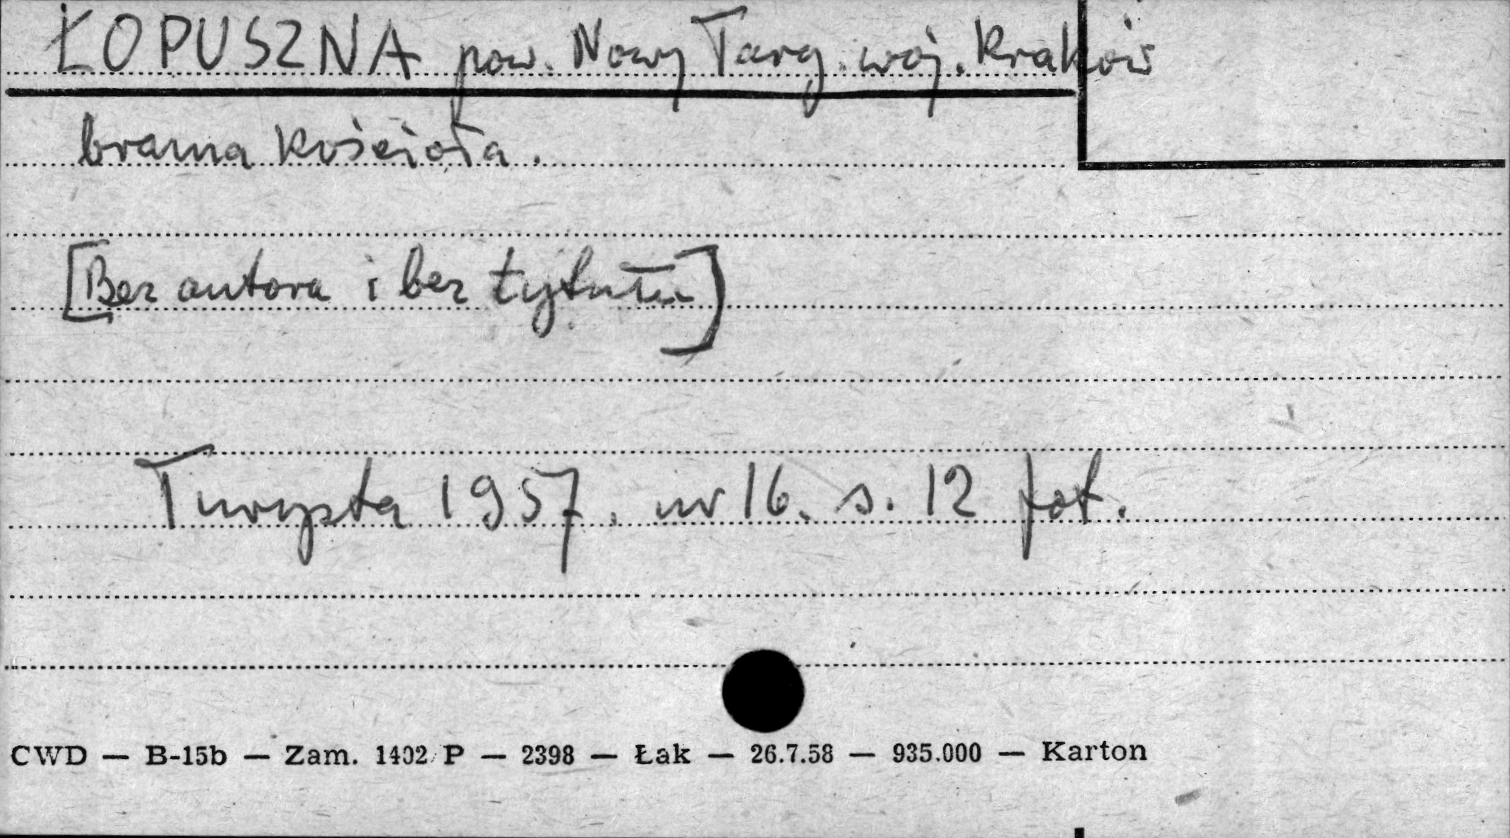 ŁOPUSZNA pow. Nowy Targ. woj. Kraków
brama kościoła.
[Bez autora i bez tytułu]
Turysta 1957. nr 16. s. 12 fot.
CWD — B-15b — Zam. 1402/P — 2398 — Łak — 26.7.58 — 935.000 — Karton